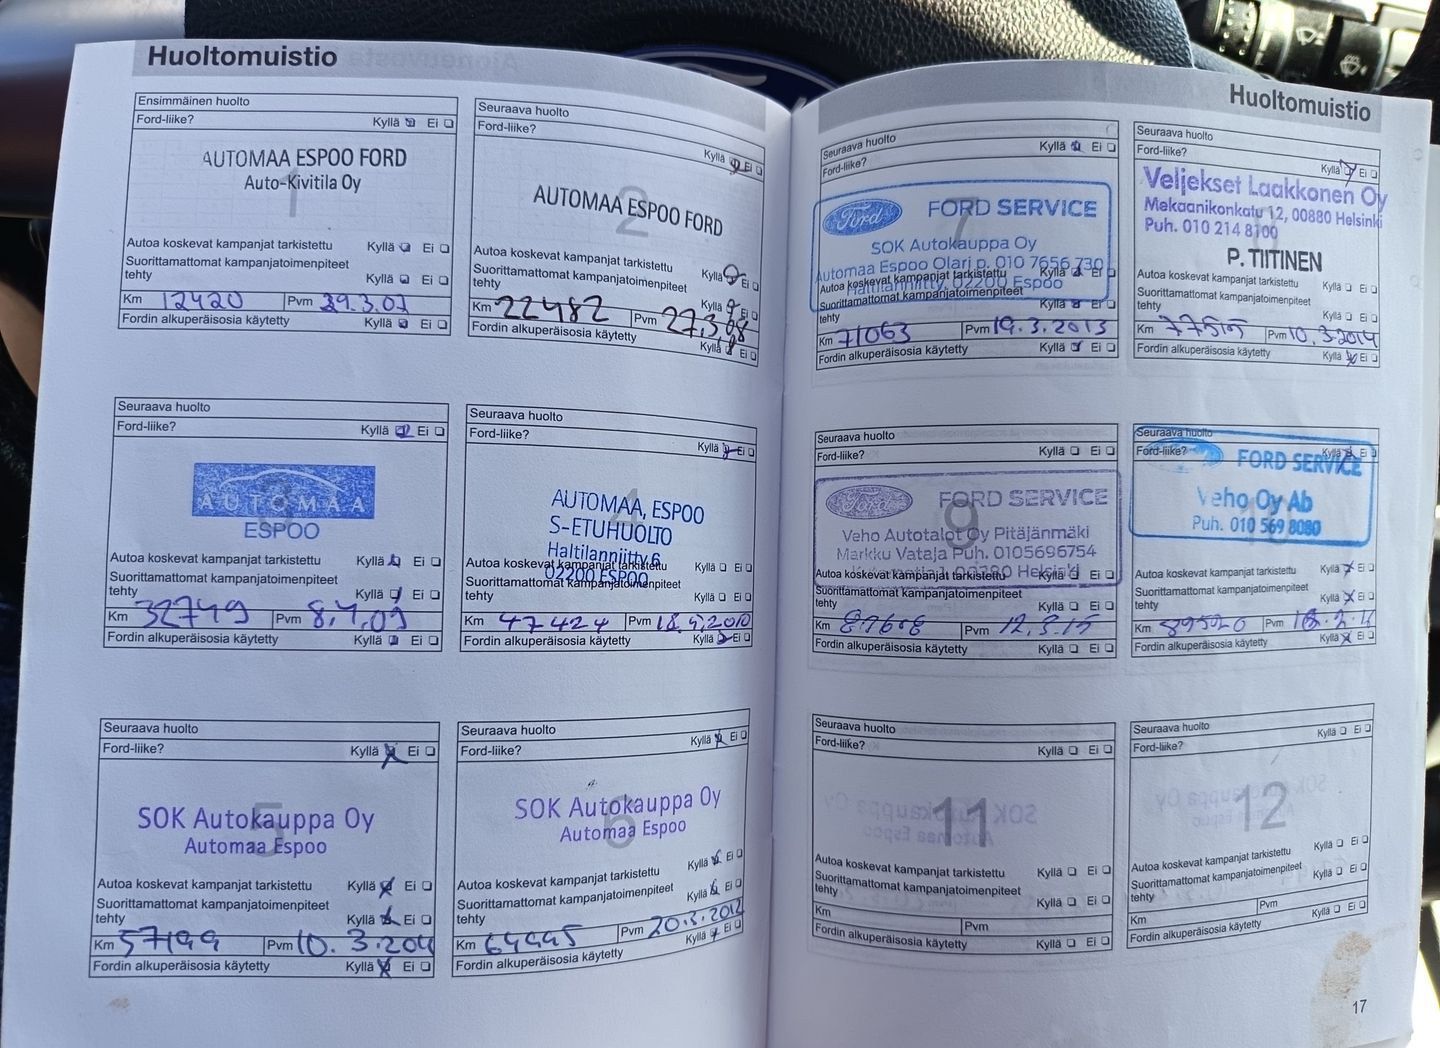 Huoltomuistio
Ensimmäinen huolto
Ford-liike? Kyllä Ei
AUTOMAA ESPOO FORD
Auto-Kivitila Oy
1
Autoa koskevat kampanjat tarkistettu Kyllä Ei
Suorittamattomat kampanjatoimenpiteet
tehty Kyllä Ei
Km 12420 Pvm 29.3.07
Fordin alkuperäisosia käytetty Kyllä Ei
Seuraava huolto
Ford-liike? Kyllä Ei
2
AUTOMAA ESPOO FORD
Autoa koskevat kampanjat tarkistettu Kyllä Ei
Suorittamattomat kampanjatoimenpiteet
tehty Kyllä Ei
Km 22482 Pvm 27.3.08
Fordin alkuperäisosia käytetty Kyllä Ei
Seuraava huolto
Ford-liike? Kyllä Ei
AUTOMAA
3
ESPOO
Autoa koskevat kampanjat tarkistettu Kyllä Ei
Suorittamattomat kampanjatoimenpiteet
tehty Kyllä Ei
Km 32749 Pvm
Fordin alkuperäisosia käytetty Kyllä Ei
Seuraava huolto
Ford-liike? Kyllä Ei
AUTOMAA, ESPOO
4
S-ETUHUOLTO
Haltilanniitty 6
02200 ESPOO
Autoa koskevat kampanjat tarkistettu Kyllä Ei
Suorittamattomat kampanjatoimenpiteet
tehty Kyllä Ei
Km 47424 Pvm
Fordin alkuperäisosia käytetty Kyllä Ei
Seuraava huolto
Ford-liike? Kyllä Ei
SOK Autokauppa Oy
5
Automaa Espoo
Autoa koskevat kampanjat tarkistettu Kyllä Ei
Suorittamattomat kampanjatoimenpiteet
tehty Kyllä Ei
Km 57199 Pvm 10.3.201
Fordin alkuperäisosia käytetty Kyllä Ei
Seuraava huolto
Ford-liike? Kyllä Ei
SOK Autokauppa Oy
6
Automaa Espoo
Autoa koskevat kampanjat tarkistettu Kyllä Ei
Suorittamattomat kampanjatoimenpiteet
tehty Kyllä Ei
Km 64995 Pvm 20.3.2012
Fordin alkuperäisosia käytetty Kyllä Ei
Huoltomuistio
Seuraava huolto
Ford-liike? Kyllä Ei
7
Ford FORD SERVICE
SOK Autokauppa Oy
Automaa Espoo Olari p. 010 7656 730
Haltilanniitty, 02200 Espoo
Autoa koskevat kampanjat tarkistettu Kyllä Ei
Suorittamattomat kampanjatoimenpiteet
tehty Kyllä Ei
Km 71063 Pvm 19.3.2013
Fordin alkuperäisosia käytetty Kyllä Ei
Seuraava huolto
Ford-liike? Kyllä Ei
Veljekset Laakkonen Oy
Mekaanikonkatu 12, 00880 Helsinki
Puh. 010 214 8100
P. TIITINEN
Autoa koskevat kampanjat tarkistettu Kyllä Ei
Suorittamattomat kampanjatoimenpiteet
tehty Kyllä Ei
Km 77515 Pvm 10.3.2014
Fordin alkuperäisosia käytetty Kyllä Ei
Seuraava huolto
Ford-liike? Kyllä Ei
9
Ford FORD SERVICE
Veho Autotalot Oy Pitäjänmäki
Markku Vataja Puh. 0105696754
00380 Helsinki
Autoa koskevat kampanjat tarkistettu Kyllä Ei
Suorittamattomat kampanjatoimenpiteet
tehty Kyllä Ei
Km Pvm 12.3.15
Fordin alkuperäisosia käytetty Kyllä Ei
Seuraava huolto
Ford-liike? Kyllä Ei
FORD SERVICE
Veho Oy Ab
Puh. 010 569 8080
Autoa koskevat kampanjat tarkistettu Kyllä Ei
Suorittamattomat kampanjatoimenpiteet
tehty Kyllä Ei
Km Pvm
Fordin alkuperäisosia käytetty Kyllä Ei
Seuraava huolto
Ford-liike? Kyllä Ei
11
Autoa koskevat kampanjat tarkistettu Kyllä Ei
Suorittamattomat kampanjatoimenpiteet
tehty Kyllä Ei
Km Pvm
Fordin alkuperäisosia käytetty Kyllä Ei
Seuraava huolto
Ford-liike? Kyllä Ei
12
Autoa koskevat kampanjat tarkistettu Kyllä Ei
Suorittamattomat kampanjatoimenpiteet
tehty Kyllä Ei
Km Pvm
Fordin alkuperäisosia käytetty Kyllä Ei
17